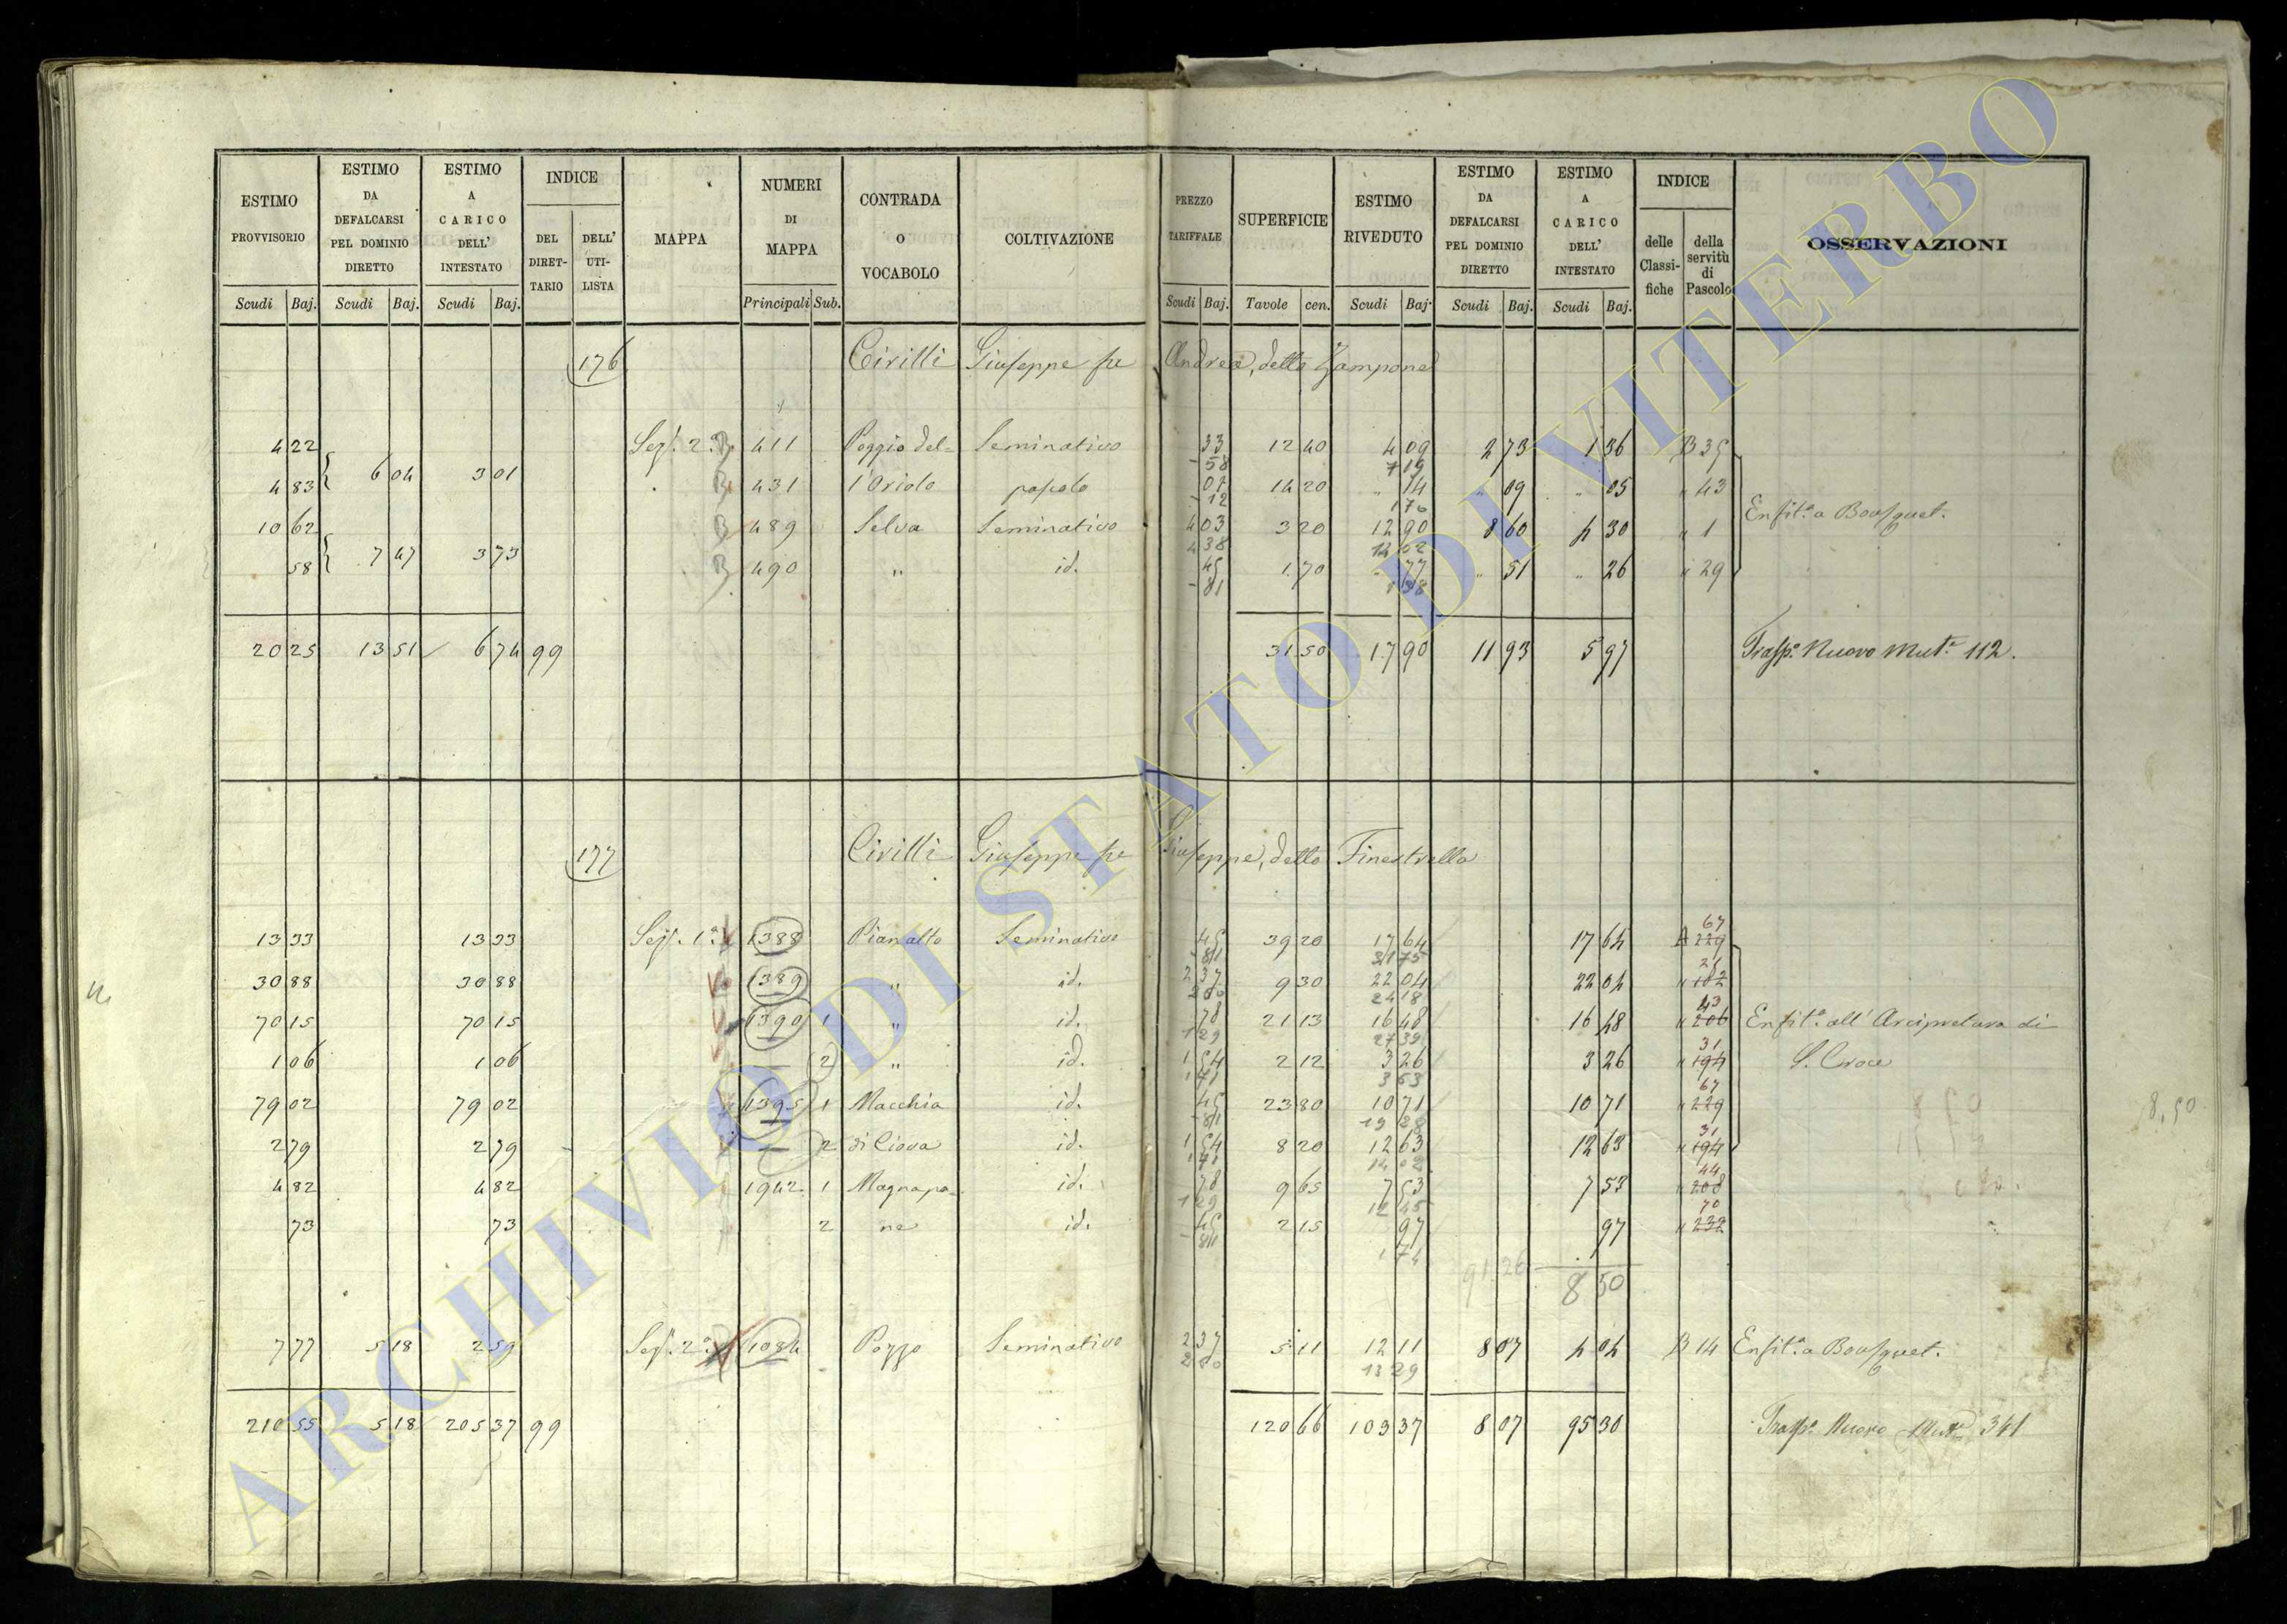 ESTIMO PROVVISORIO | ESTIMO DA DEFALCARSI PEL DOMINIO DIRETTO | ESTIMO A CARICO DELL' INTESTATO | INDICE | MAPPA | NUMERI DI MAPPA | CONTRADA O VOCABOLO | COLTIVAZIONE | PREZZO TARIFFALE | SUPERFICIE | ESTIMO RIVEDUTO | ESTIMO DA DEFALCARSI PEL DOMINIO DIRETTO | ESTIMO A CARICO DELL' INTESTATO | INDICE | OSSERVAZIONI
DEL DIRETTARIO | DELL' UTILISTA | delle Classifiche | della servitù di Pascolo
Scudi Baj. | Scudi Baj. | Scudi Baj. | Principali Sub. | Scudi Baj. | Tavole cen. | Scudi Baj. | Scudi Baj. | Scudi Baj.
176 Cirilli Giuseppe fu Andrea, detto Zampone
4 22 | Sez. 2ª B 411 | Poggio del- | Seminativo | 33 | 12 40 | 4 09 | 2 73 | 1 36 | B 35
6 04 | 3 01 | 58 | 7 19
4 83 | B 431 | l'Oriolo | pascolo | 01 | 14 20 | " 14 | " 09 | " 05 | " 43
12 | 1 70 | Enfit.ª a Bousquet.
10 62 | B 489 | Selva | Seminativo | 4 03 | 3 20 | 12 90 | 8 60 | 4 30 | " 1
7 47 | 3 73 | 4 38 | 14 02
58 | B 490 | " | id. | 45 | 1 70 | " 77 | " 51 | " 26 | " 29
81 | 1 38
20 25 | 13 51 | 6 74 | 99 | 31 50 | 17 90 | 11 93 | 5 97 | Trasp.º Nuovo Mut.e 112.
177 Cirilli Giuseppe fu Giuseppe, detto Finestrella
13 33 | 13 33 | Sez. 1ª 1388 | Pianalto | Seminativo | 45 | 39 20 | 17 64 | 17 64 | A 229 67
81 | 31 75
30 88 | 30 88 | 1389 | " | id. | 2 37 | 9 30 | 22 04 | 22 04 | " 182 21
2 60 | 24 18
70 15 | 70 15 | 1390 1 | " | id. | 78 | 21 13 | 16 48 | 16 48 | " 206 43 | Enfit.ª all' Arcipretura di
1 29 | 27 39
1 06 | 1 06 | 2 | " | id. | 1 54 | 2 12 | 3 26 | 3 26 | " 194 31 | S. Croce
1 71 | 3 63
79 02 | 79 02 | 1395 1 | Macchia | id. | 45 | 23 80 | 10 71 | 10 71 | " 229 67 | 8 50 | 8,50
81 | 19 28
2 79 | 2 79 | 2 | di Ciova | id. | 1 54 | 8 20 | 12 63 | 12 63 | " 194 31
1 71 | 14 02
4 82 | 4 82 | 1942 1 | Magnapa- | id. | 78 | 9 65 | 7 53 | 7 53 | " 208 44
1 29 | 12 45
73 | 73 | 2 | ne | id. | 45 | 2 15 | 97 | 97 | " 232 70
81 | 1 74
91.26 | 8 50
7 77 | 5 18 | 2 59 | Sez. 2ª 1084 | Pozzo | Seminativo | 2 37 | 5 11 | 12 11 | 8 07 | 4 04 | B 14 | Enfit.ª a Bousquet.
2 60 | 13 29
210 55 | 5 18 | 205 37 | 99 | 120 66 | 103 37 | 8 07 | 95 30 | Trasp.º Nuovo Mut.e 341
ARCHIVIO DI STATO DI VITERBO